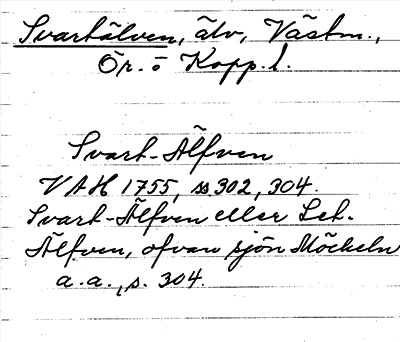 Svartälven, älv, Västm.,
Ör. o Kopp. l.
Svart-Älfven
VAH 1755, ss. 302, 304.
Svart-Älfven eller Let-
Älfven, ofvan sjön Möckeln
a. a., s. 304.